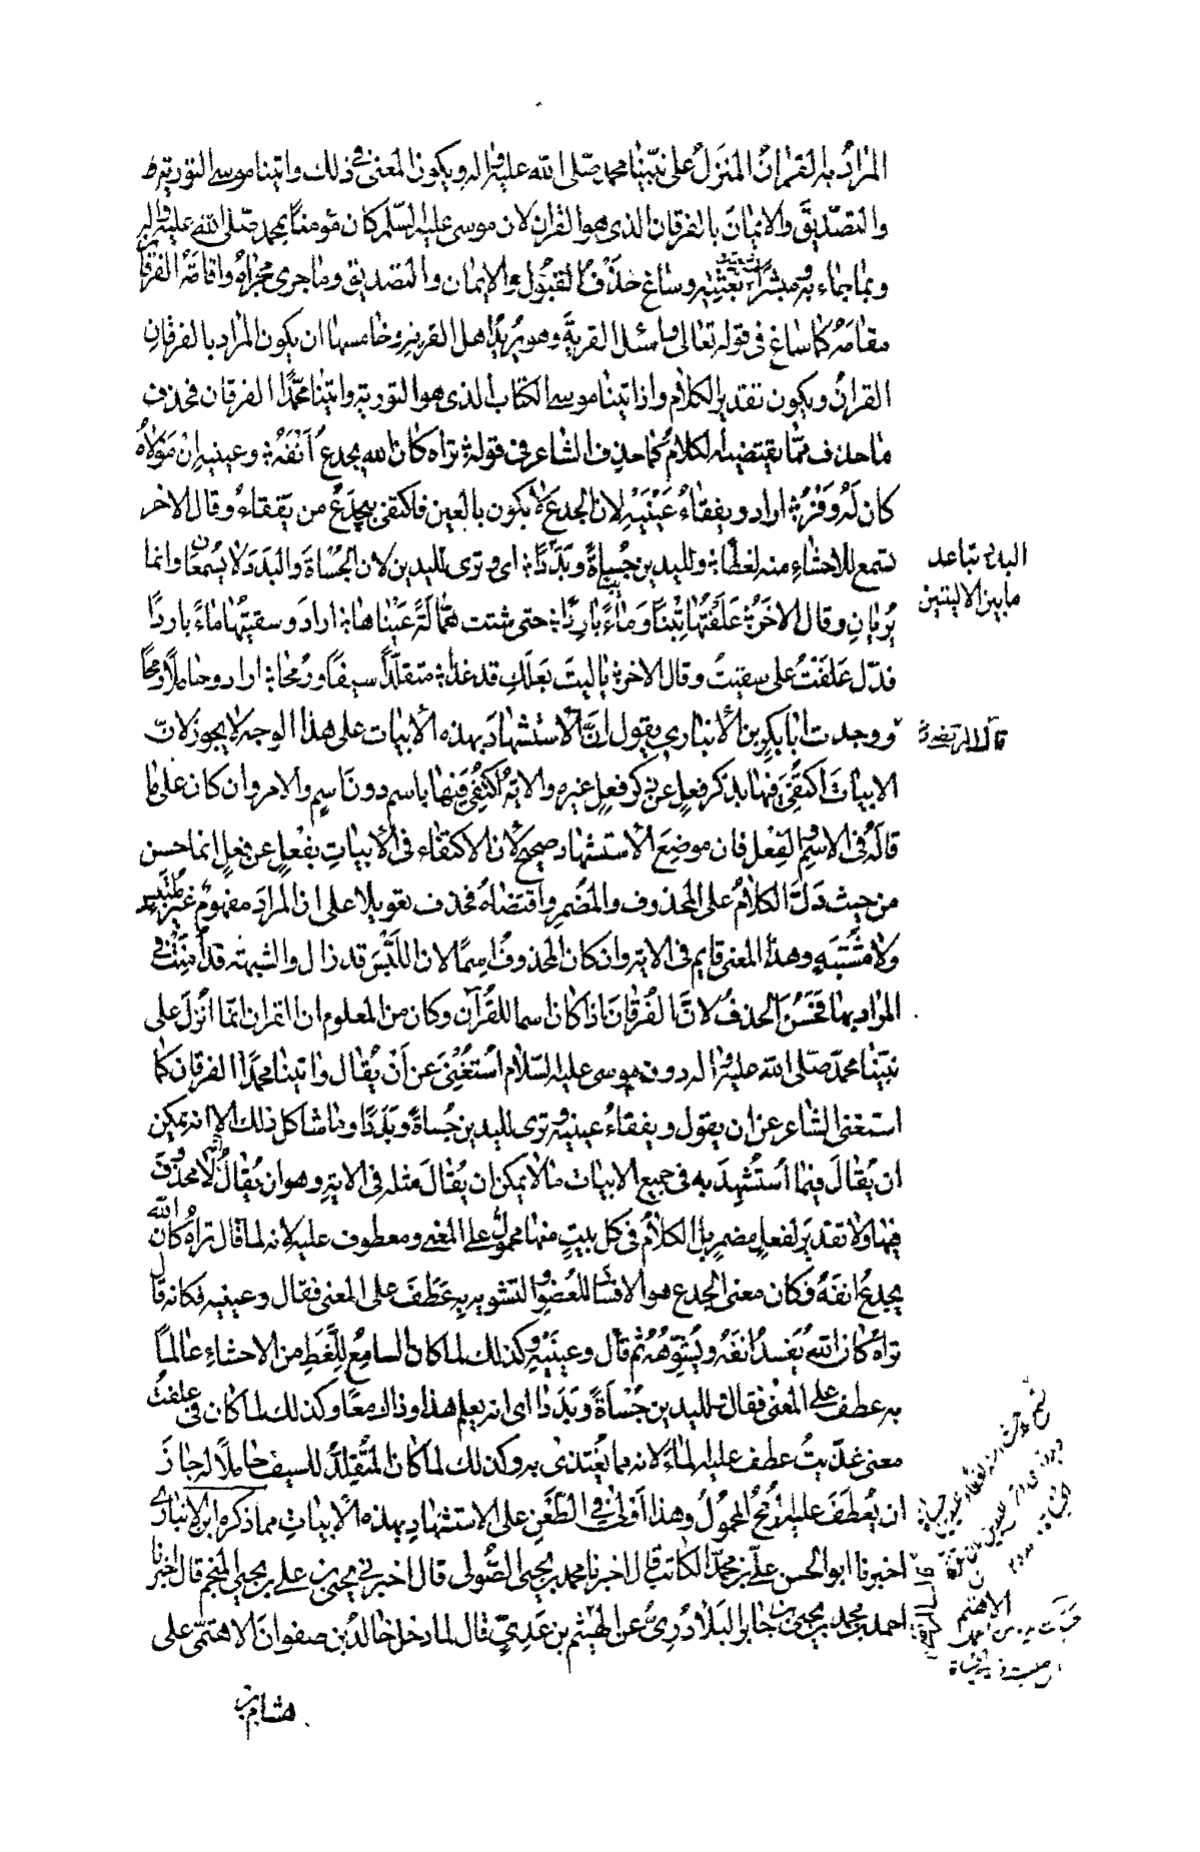 المرادُ به القران المنزل على نبيّنا محمد صلى الله عليه واله ويكون المعنى فى ذلك واتينا موسى التورية
والتصديق والايمان بالفرقان الذى هو القران لان موسى عليه السلم كان مؤمنا بمحمد صلى الله عليه واله
وبما جاء به ومبشرا ببعثته وساغ حذف القبول والايمان والتصديق وما جرى مجراه واقامة الفرقان
مقامه كما ساغ فى قوله تعالى واسئل القرية وهو يريد اهل القرية وخامسها ان يكون المراد بالفرقان
القران ويكون تقدير الكلام واذ اتينا موسى الكتاب الذى هو التورية واتينا محمدا الفرقان فحذف
ما حذف مما يقتضيه الكلام كما حذف الشاعر فى قوله تراه كان الله يجدع انفه وعينيه ان مولاه
كان له وفر اراد ويفقاء عينيه لان الجدع لا يكون بالعين فاكتفى بيجدع من يفقاء وقال الاخر
تسمع للاحشاء منه لغطا ولليدين جساة وبددا اى وترى لليدين لان الجساة والبدد لا يسمعان وانما
البدد تباعد
ما بين الاليتين
يريان وقال الاخر علفتها تبنا وماء باردا حتى شتت همالة عيناها اراد وسقيتها ماء باردا
فدل علفت على سقيت وقال الاخر يا ليت بعلك قد غدا متقلدا سيفا ورمحا اراد وحاملا رمحا
قال المرتضى
ووجدت ابا بكر بن الانبارى يقول ان الاستشهاد بهذه الابيات على هذا الوجه لا يجوز لان
الابيات اكتفى فيها بذكر فعل عن ذكر فعل غيره والاية اكتفى فيها باسم دون اسم والامر وان كان على ما
قاله فى الاسم والفعل فان موضع الاستشهاد صحيح لان الاكتفاء فى الابيات بفعل عن فعل انما حسن
من حيث دل الكلام على المحذوف والمضمر واقتضاه فحذف تعويلا على ان المراد مفهوم غير ملتبس
ولا مشتبه وهذا المعنى قايم فى الاية وان كان المحذوف اسما لان اللبس قد زال والشبهة قد امنت فى
المراد بها فحسن الحذف لان الفرقان اذا كان اسما للقرآن وكان من المعلوم ان القران انما انزل على
نبينا محمد صلى الله عليه واله دون موسى عليه السلام استغنى عن ان يقال واتينا محمدا الفرقان كما
استغنى الشاعر عن ان يقول ويفقاء عينيه وترى لليدين جساة وبددا وما شاكل ذلك الا انه يمكن
ان يقال فيما استشهد به فى جميع الابيات ما لا يمكن ان يقال مثله فى الاية وهو ان يقال انه لا محذوف
فيها ولا تقدير لفعل مضمر بل الكلام فى كل بيت منها محمول على المعنى ومعطوف عليه لانه لما قال تراه كان الله
يجدع انفه وكان معنى الجدع هو الافساد للعضو والتشويه به عطف على المعنى فقال وعينيه فكانه قال
تراه كان الله يفسد انفه ويشوهه ثم قال وعينيه وكذلك لما كان السامع للغط من الاحشاء عالما
به عطف على المعنى فقال ولليدين جساة وبددا اى انه يعلم هذا وذاك معا وكذلك لما كان فى علفت
معنى غذيت عطف عليه الماء لانه مما يغتذى به وكذلك لما كان المتقلد للسيف حاملا له جاز
ان يعطف عليه الرمح المحمول وهذا اولى فى الطعن على الاستشهاد بهذه الابيات مما ذكره ابن الانبارى
اخبرنا ابو الحسن على بن محمد الكاتب قال اخبرنا محمد بن يحيى الصولى قال اخبرنى يحيى بن على بن يحيى المنجم قال اخبرنا
احمد بن يحيى بن جابر البلاذرى عن الهيثم بن عدى قال لما دخل خالد بن صفوان الاهتمى على
الاهتم
هشام بن